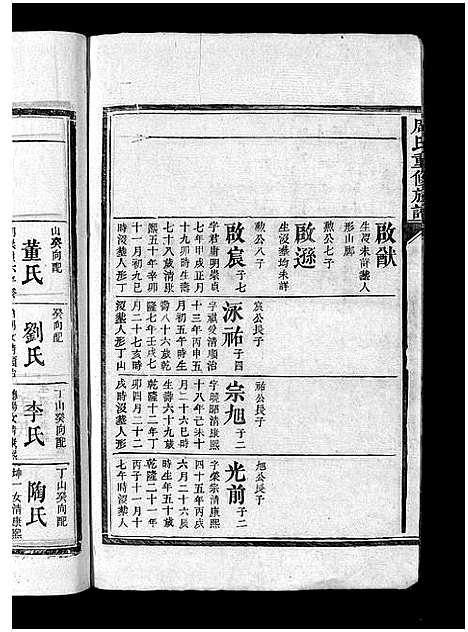 周氏重修族譜
啟猷
生沒未詳葬人
形山脚
勲公七子
啟遜
生沒葬均未詳
勲公八子
啟宸 子七
字君庸明崇貞
七年甲戌正月
十九卯時生壽
七十八歲清康
熙五十年辛卯
十一月初九巳
時沒葬人形丁
宸公長子
泳祐 子四
字祺爱清順治
十三年丙申五
月初五午時生
壽八十六歲乾
隆七年壬戌七
月二十七亥時
沒葬人形丁山
祐公長子
宗旭 子二
清康熙
十八年己未十
月二十六巳時
生壽六十九歲
乾隆十二年丁
卯四月二十二
戌時沒葬人形
旭公長子
光前 子二
字榮崇清康熙
四十五年丙戌
六月二十六酉
時生年五十歲
乾隆二十一年
丙子十一月十
七午時沒葬人
山癸向配
董氏
癸向配
劉氏
丁山癸向配
李氏
丁山癸向配
陶氏
坤一女清康熙